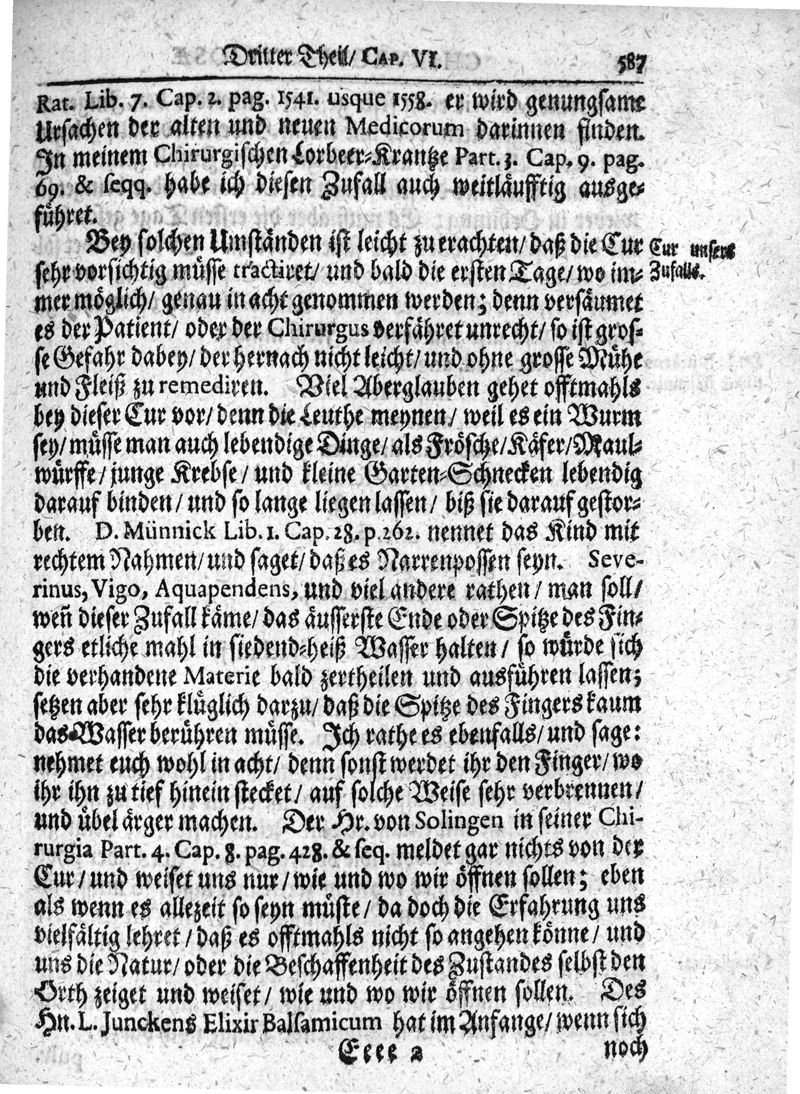 Dritter Theil/ CAP. VI. 587
Rat. Lib. 7. Cap. 2. pag. 1541. usque 1558. er wird genungsame
Ursachen der alten und neuen Medicorum darinnen finden.
In meinem Chirurgischen Lorbeer-Krantze Part. 3. Cap. 9. pag.
69. & seqq. habe ich diesen Zufall auch weitläufftig ausge-
führet.
Bey solchen Umständen ist leicht zu erachten/ daß die Cur
Cur unsers
sehr vorsichtig müsse tractiret/ und bald die ersten Tage/ wo im-
Zufalls.
mer möglich/ genau in acht genommen werden; denn versäumet
es der Patient/ oder der Chirurgus verfähret unrecht/ so ist gros-
se Gefahr dabey/ der hernach nicht leicht/ und ohne grosse Mühe
und Fleiß zu remediren. Viel Aberglauben gehet offtmahls
bey dieser Cur vor/ denn die Leuthe meynen/ weil es ein Wurm
sey/ müsse man auch lebendige Dinge/ als Frösche/ Käfer/ Maul-
würffe/ junge Krebse/ und kleine Garten-Schnecken lebendig
darauf binden/ und so lange liegen lassen/ biß sie darauf gestor-
ben. D. Münnick Lib. 1. Cap. 28. p. 262. nennet das Kind mit
rechtem Nahmen/ und saget/ daß es Narrenpossen seyn. Seve-
rinus, Vigo, Aquapendens, und viel andere rathen/ man soll/
weñ dieser Zufall käme/ das äusserste Ende oder Spitze des Fin-
gers etliche mahl in siedend-heiß Wasser halten/ so würde sich
die verhandene Materie bald zertheilen und ausführen lassen;
setzen aber sehr klüglich darzu/ daß die Spitze des Fingers kaum
das Wasser berühren müsse. Ich rathe es ebenfalls/ und sage:
nehmet euch wohl in acht/ denn sonst werdet ihr den Finger/ wo
ihr ihn zu tief hinein stecket/ auf solche Weise sehr verbrennen/
und übel ärger machen. Der Hr. von Solingen in seiner Chi-
rurgia Part. 4. Cap. 8. pag. 428. & seq. meldet gar nichts von der
Cur/ und weiset uns nur/ wie und wo wir öffnen sollen; eben
als wenn es allezeit so seyn müste/ da doch die Erfahrung uns
vielfältig lehret/ daß es offtmahls nicht so angehen könne/ und
uns die Natur/ oder die Beschaffenheit des Zustandes selbst den
Orth zeiget und weiset/ wie und wo wir öffnen sollen. Des
Hn. L. Junckens Elixir Balsamicum hat im Anfange/ wenn sich
Eeee 2 noch